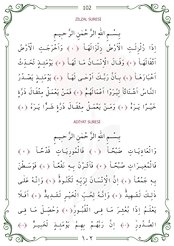 102
ZİLZAL SURESİ
بِسْمِ اللّٰهِ الرَّحْمٰنِ الرَّحِيمِ
اِذَا زُلْزِلَتِ الْاَرْضُ زِلْزَالَهَا ﴿١﴾ وَاَخْرَجَتِ الْاَرْضُ
اَثْقَالَهَا ﴿٢﴾ وَقَالَ الْاِنْسَانُ مَا لَهَا ﴿٣﴾ يَوْمَئِذٍ تُحَدِّثُ
اَخْبَارَهَا ﴿٤﴾ بِاَنَّ رَبَّكَ اَوْحٰى لَهَا ﴿٥﴾ يَوْمَئِذٍ يَصْدُرُ
النَّاسُ اَشْتَاتًا لِيُرَوْا اَعْمَالَهُمْ ﴿٦﴾ فَمَنْ يَعْمَلْ مِثْقَالَ ذَرَّةٍ
خَيْرًا يَرَهُ ﴿٧﴾ وَمَنْ يَعْمَلْ مِثْقَالَ ذَرَّةٍ شَرًّا يَرَهُ ﴿٨﴾
ADİYAT SURESİ
بِسْمِ اللّٰهِ الرَّحْمٰنِ الرَّحِيمِ
وَالْعَادِيَاتِ ضَبْحًا ﴿١﴾ فَالْمُورِيَاتِ قَدْحًا ﴿٢﴾
فَالْمُغِيرَاتِ صُبْحًا ﴿٣﴾ فَاَثَرْنَ بِهِ نَقْعًا ﴿٤﴾ فَوَسَطْنَ
بِهِ جَمْعًا ﴿٥﴾ اِنَّ الْاِنْسَانَ لِرَبِّهِ لَكَنُودٌ ﴿٦﴾ وَاِنَّهُ عَلٰى
ذٰلِكَ لَشَهِيدٌ ﴿٧﴾ وَاِنَّهُ لِحُبِّ الْخَيْرِ لَشَدِيدٌ ﴿٨﴾ اَفَلَا
يَعْلَمُ اِذَا بُعْثِرَ مَا فِى الْقُبُورِ ﴿٩﴾ وَحُصِّلَ مَا فِى
الصُّدُورِ ﴿١٠﴾ اِنَّ رَبَّهُمْ بِهِمْ يَوْمَئِذٍ لَخَبِيرٌ ﴿١١﴾
١٠٢